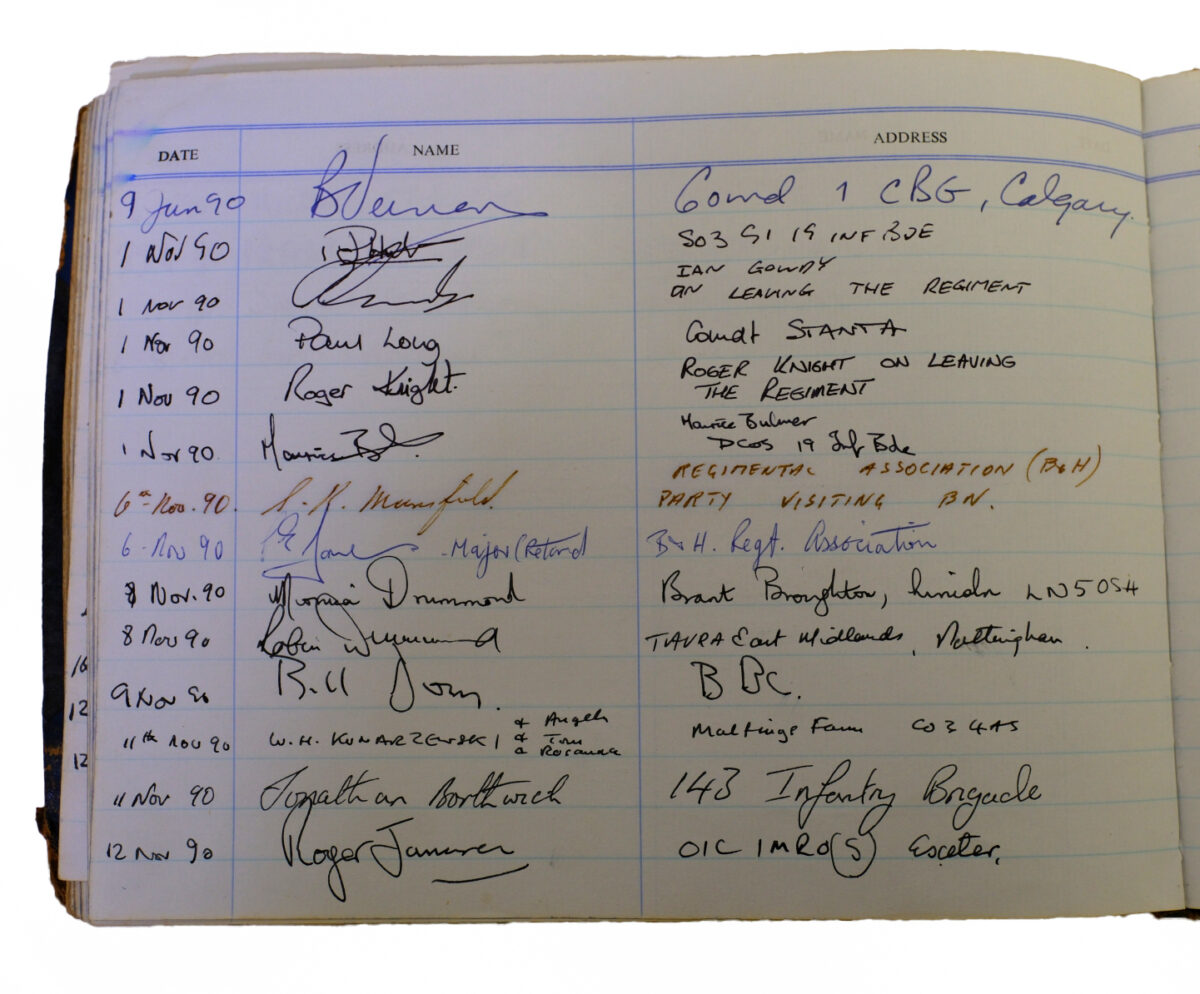 DATE NAME ADDRESS
9 Jun 90 Comd 1 CBG, Calgary.
1 Nov 90 SO3 G1 19 INF BDE
IAN GOWDY
1 Nov 90 ON LEAVING THE REGIMENT
1 Nov 90 Paul Long Comdt STANTA
ROGER KNIGHT ON LEAVING
1 Nov 90 Roger Knight. THE REGIMENT
Maurice Bulmer
1 Nov 90 Maurice DCOS 19 Inf Bde
REGIMENTAL ASSOCIATION (B&H)
6th Nov. 90. Mansfield. PARTY VISITING BN.
6 - Nov 90 - Major (Retired B & H. Regt. Association
8 Nov. 90 Drummond Brant Broughton, Lincoln LN5 0SH
8 Nov 90 Robin TAVRA East Midlands, Nottingham.
9 Nov 90 Bill BBC.
& Angela
11th Nov 90 W. H. KUNARZEWSKI & Tom Maltings Farm CO3 4AS
& Rosanna
11 Nov 90 Jonathan Borthwick 143 Infantry Brigade
12 Nov 90 Roger OIC IMRO(S) Exeter.
16
12
12